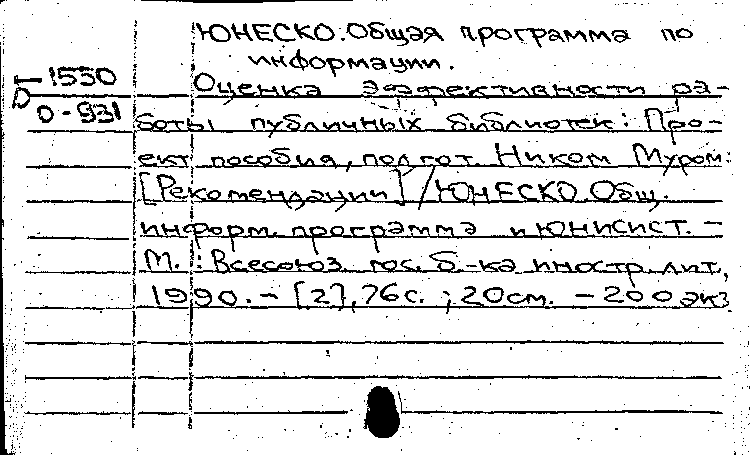 ЮНЕСКО. Общая программа по
информации.
1550
О-931
Оценка эффективности ра-
боты публичных библиотек: Про-
ект пособия, подгот. Ником Муром:
[Рекомендации] / ЮНЕСКО. Общ.
информ. программа и ЮНИСИСТ. –
М.: Всесоюз. гос. б-ка иностр. лит.,
1990. – [2], 76 с.; 20 см. – 200 экз